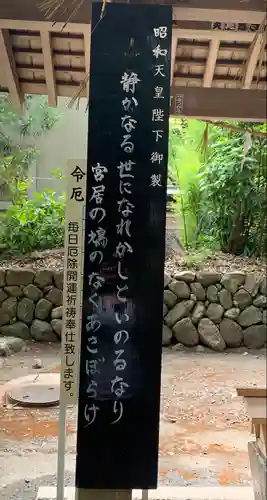 昭和天皇陛下御製
静かなる世になれかしといのるなり
宮居の鳩のなくあさぼらけ
厄
毎日厄除開運祈祷奉仕致します。